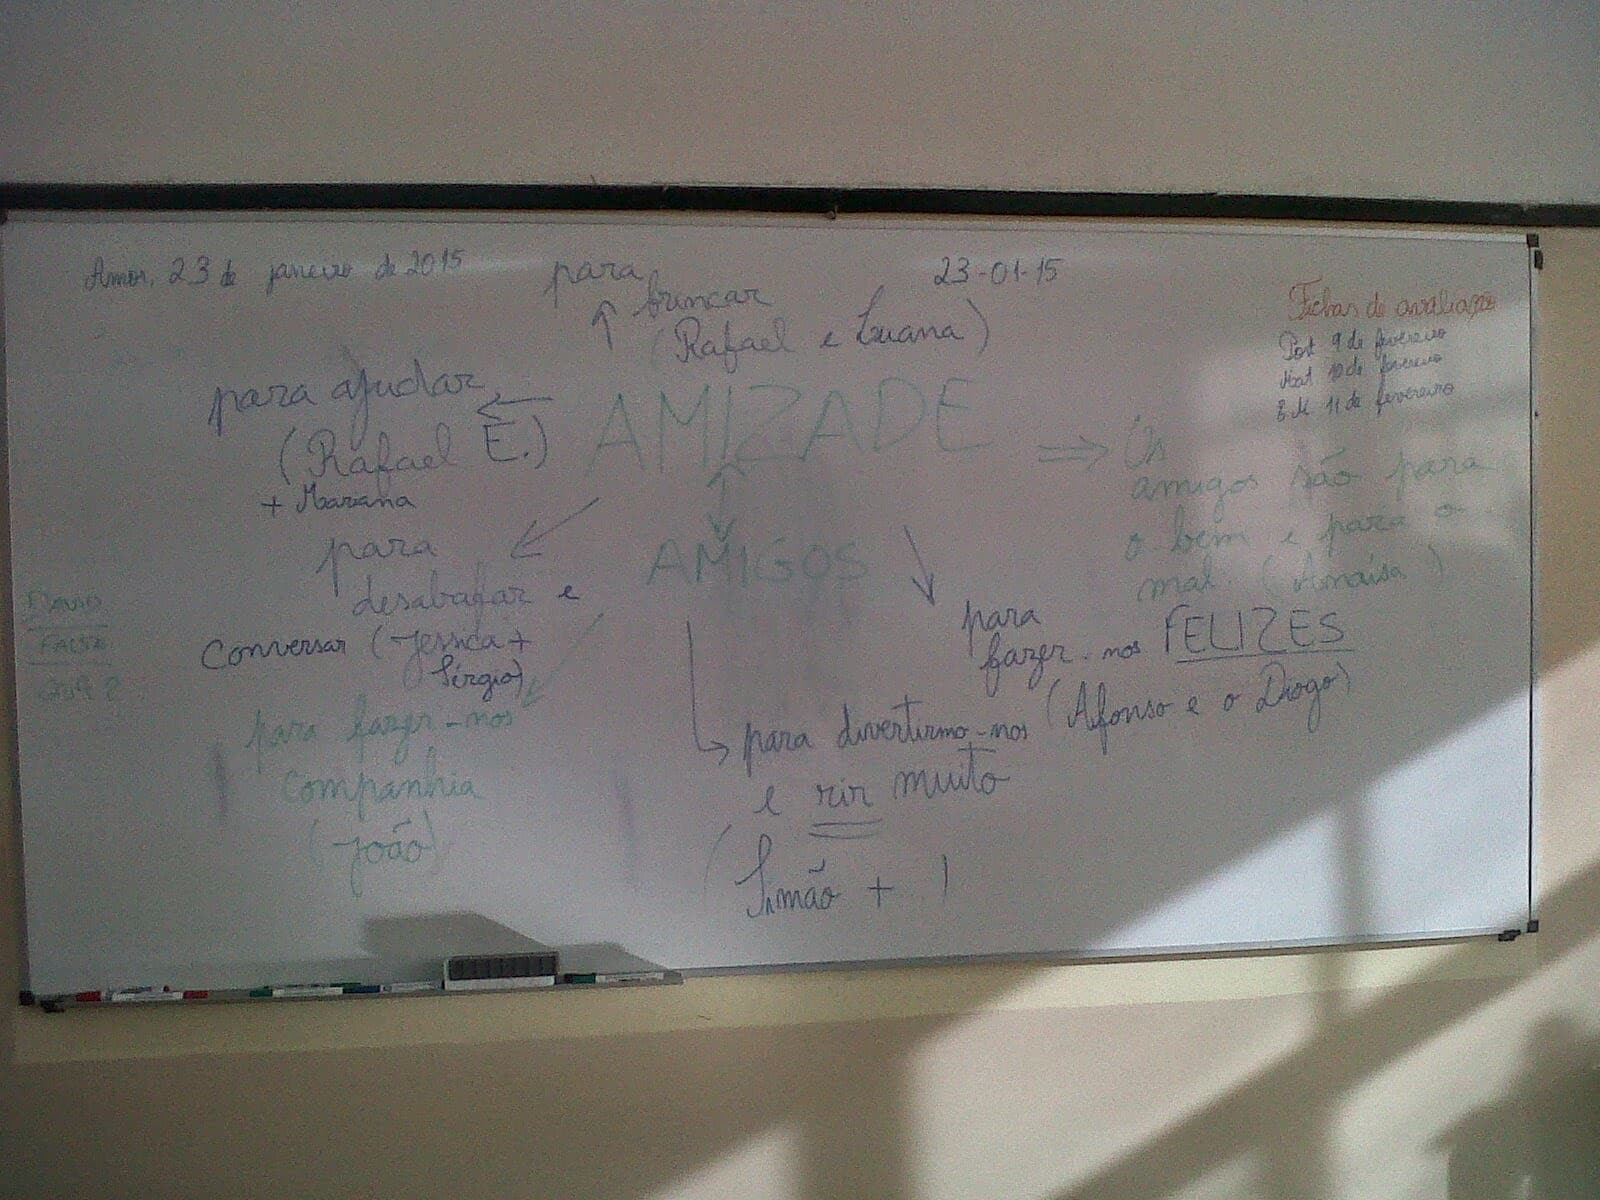 Amor, 23 de janeiro de 2015
23-01-15
para
brincar
(Rafael e Luana)
Fichas de avaliação
Port 9 de fevereiro
Mat 10 de fevereiro
E.M. 11 de fevereiro
para ajudar
(Rafael E.)
+ Mariana
AMIZADE
Os
amigos são para
o bem e para o
mal. (Anaisa)
AMIGOS
para
desabafar e
conversar (Jessica +
Sérgio)
para
fazer-nos FELIZES
(Afonso e o Diogo)
FALTA
para fazer-nos
companhia
(João)
para divertirmo-nos
e rir muito
(Simão + )